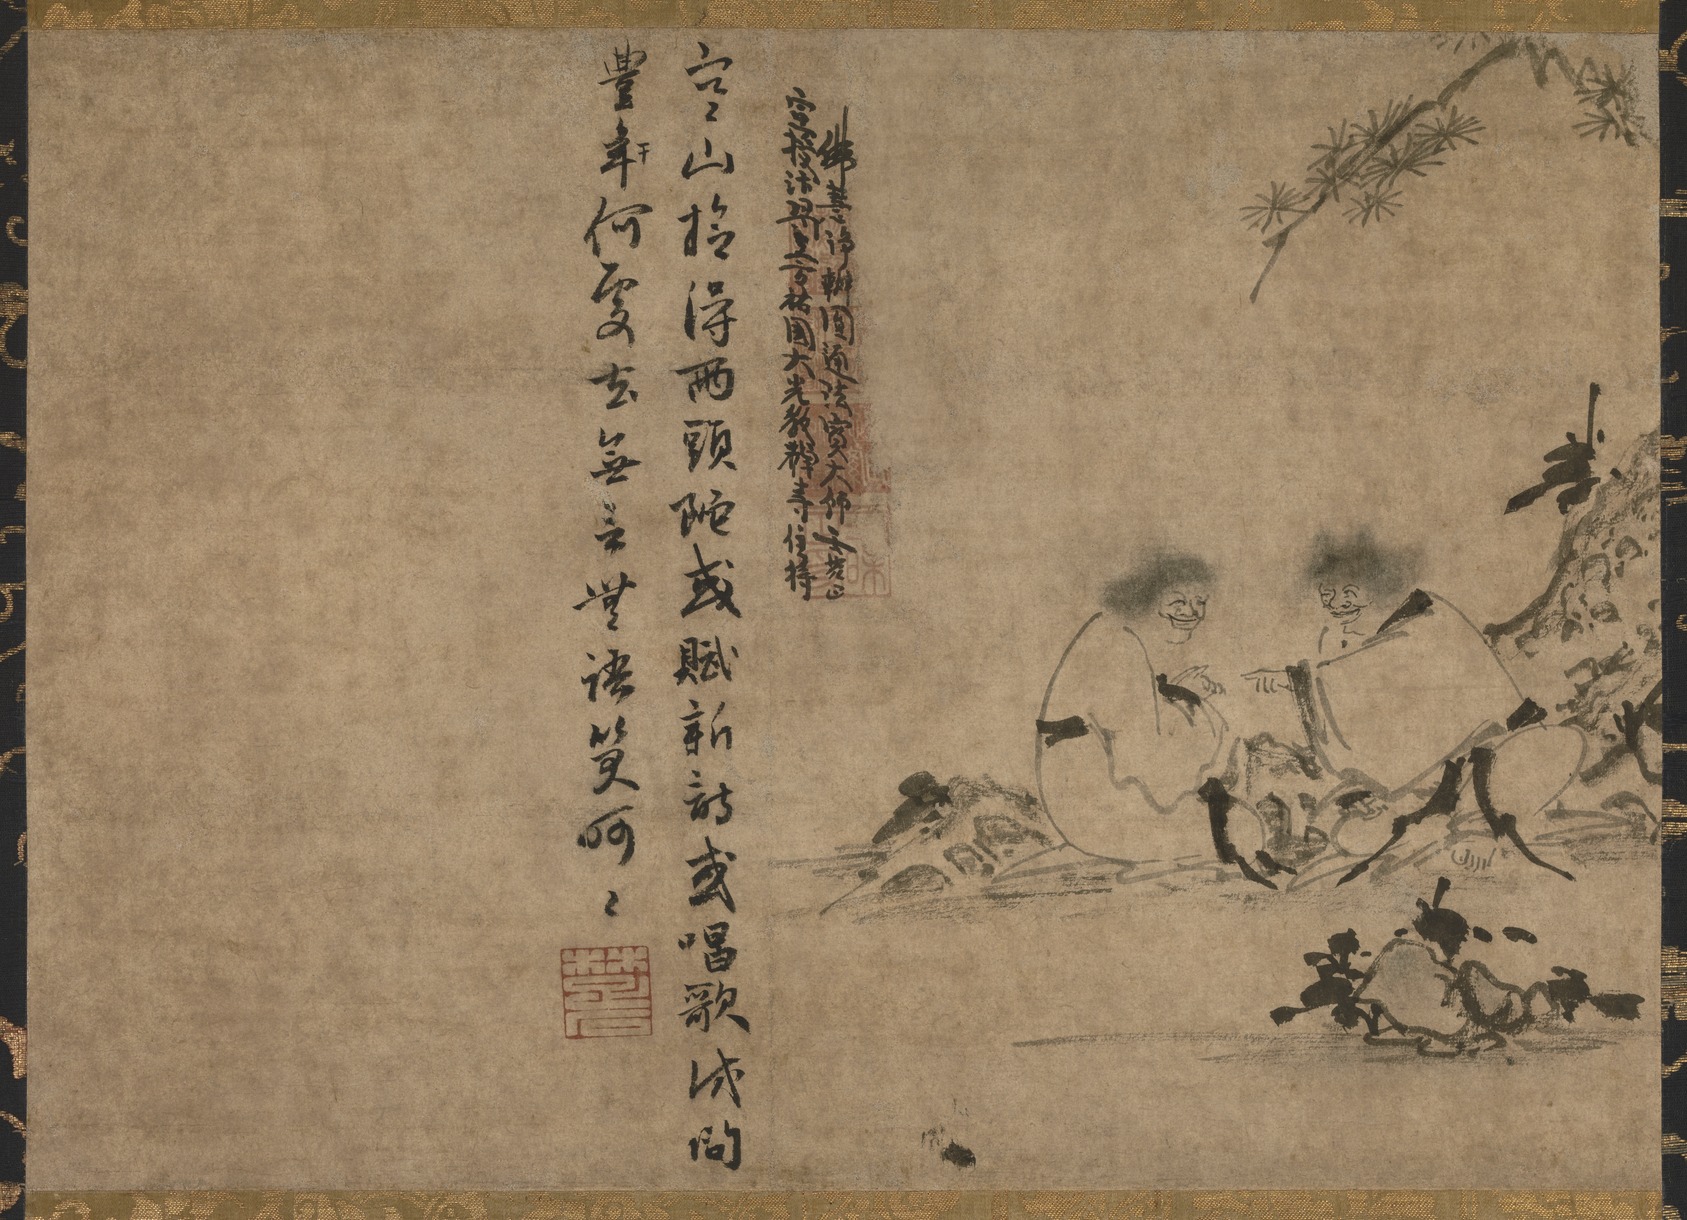 宣授汴梁上方祐國大光教禪寺住持
佛慧淨辨圓通法寶大師壬梵因
寒山拾得兩頭陀或賦新詩或唱歌試問
豐年干何處去無言無語笑呵〻
楚石